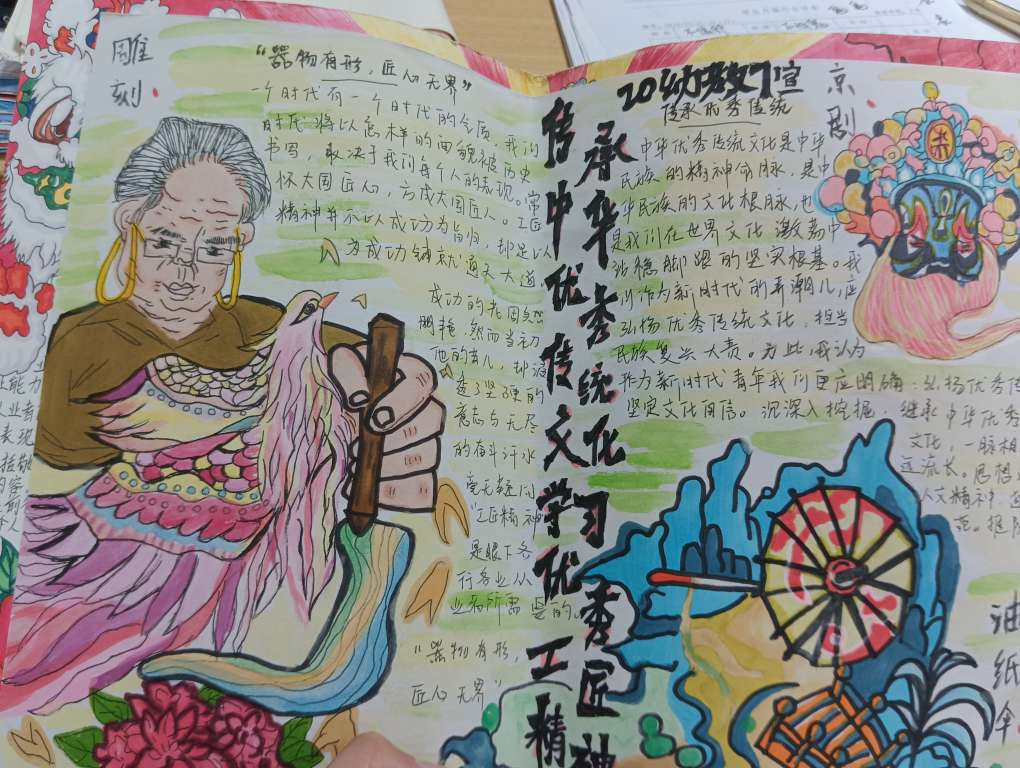 雕
刻
“器物有形，匠心无界”
一个时代有一个时代的金质，我们
时代将以怎样的面貌被历史
书写，取决于我们每个人的表现。常
怀大国匠心，方成大国匠人。工匠
精神并不以成功为旨归，却足以
为成功铺就通天大道。
成功的花固然
鲜艳，然而当初
他的芽儿，却浸
透了坚强的
意志与无尽
的奋斗汗水
毫无疑问
“工匠精神”
是眼下各
行各业从
业者所需要的。
“器物有形，
匠心无界”
传承
中华
优秀
传统
文化
学习
优秀
工匠
精神
传承优秀传统
中华优秀传统文化是中华
民族的精神命脉，是中
华民族的文化根脉，也
是我们在世界文化激荡中
站稳脚跟的坚实根基。我
们作为新时代的弄潮儿，应
弘扬优秀传统文化，担当
民族复兴大责。为此，我认为
作为新时代青年我们更应明确：弘扬优秀传
坚定文化自信。沉深入挖掘，继承中华优秀
文化，一脉相
远流长。思想
人文精神
范。
京
剧
油
纸
伞
能力
业者
表现
内容